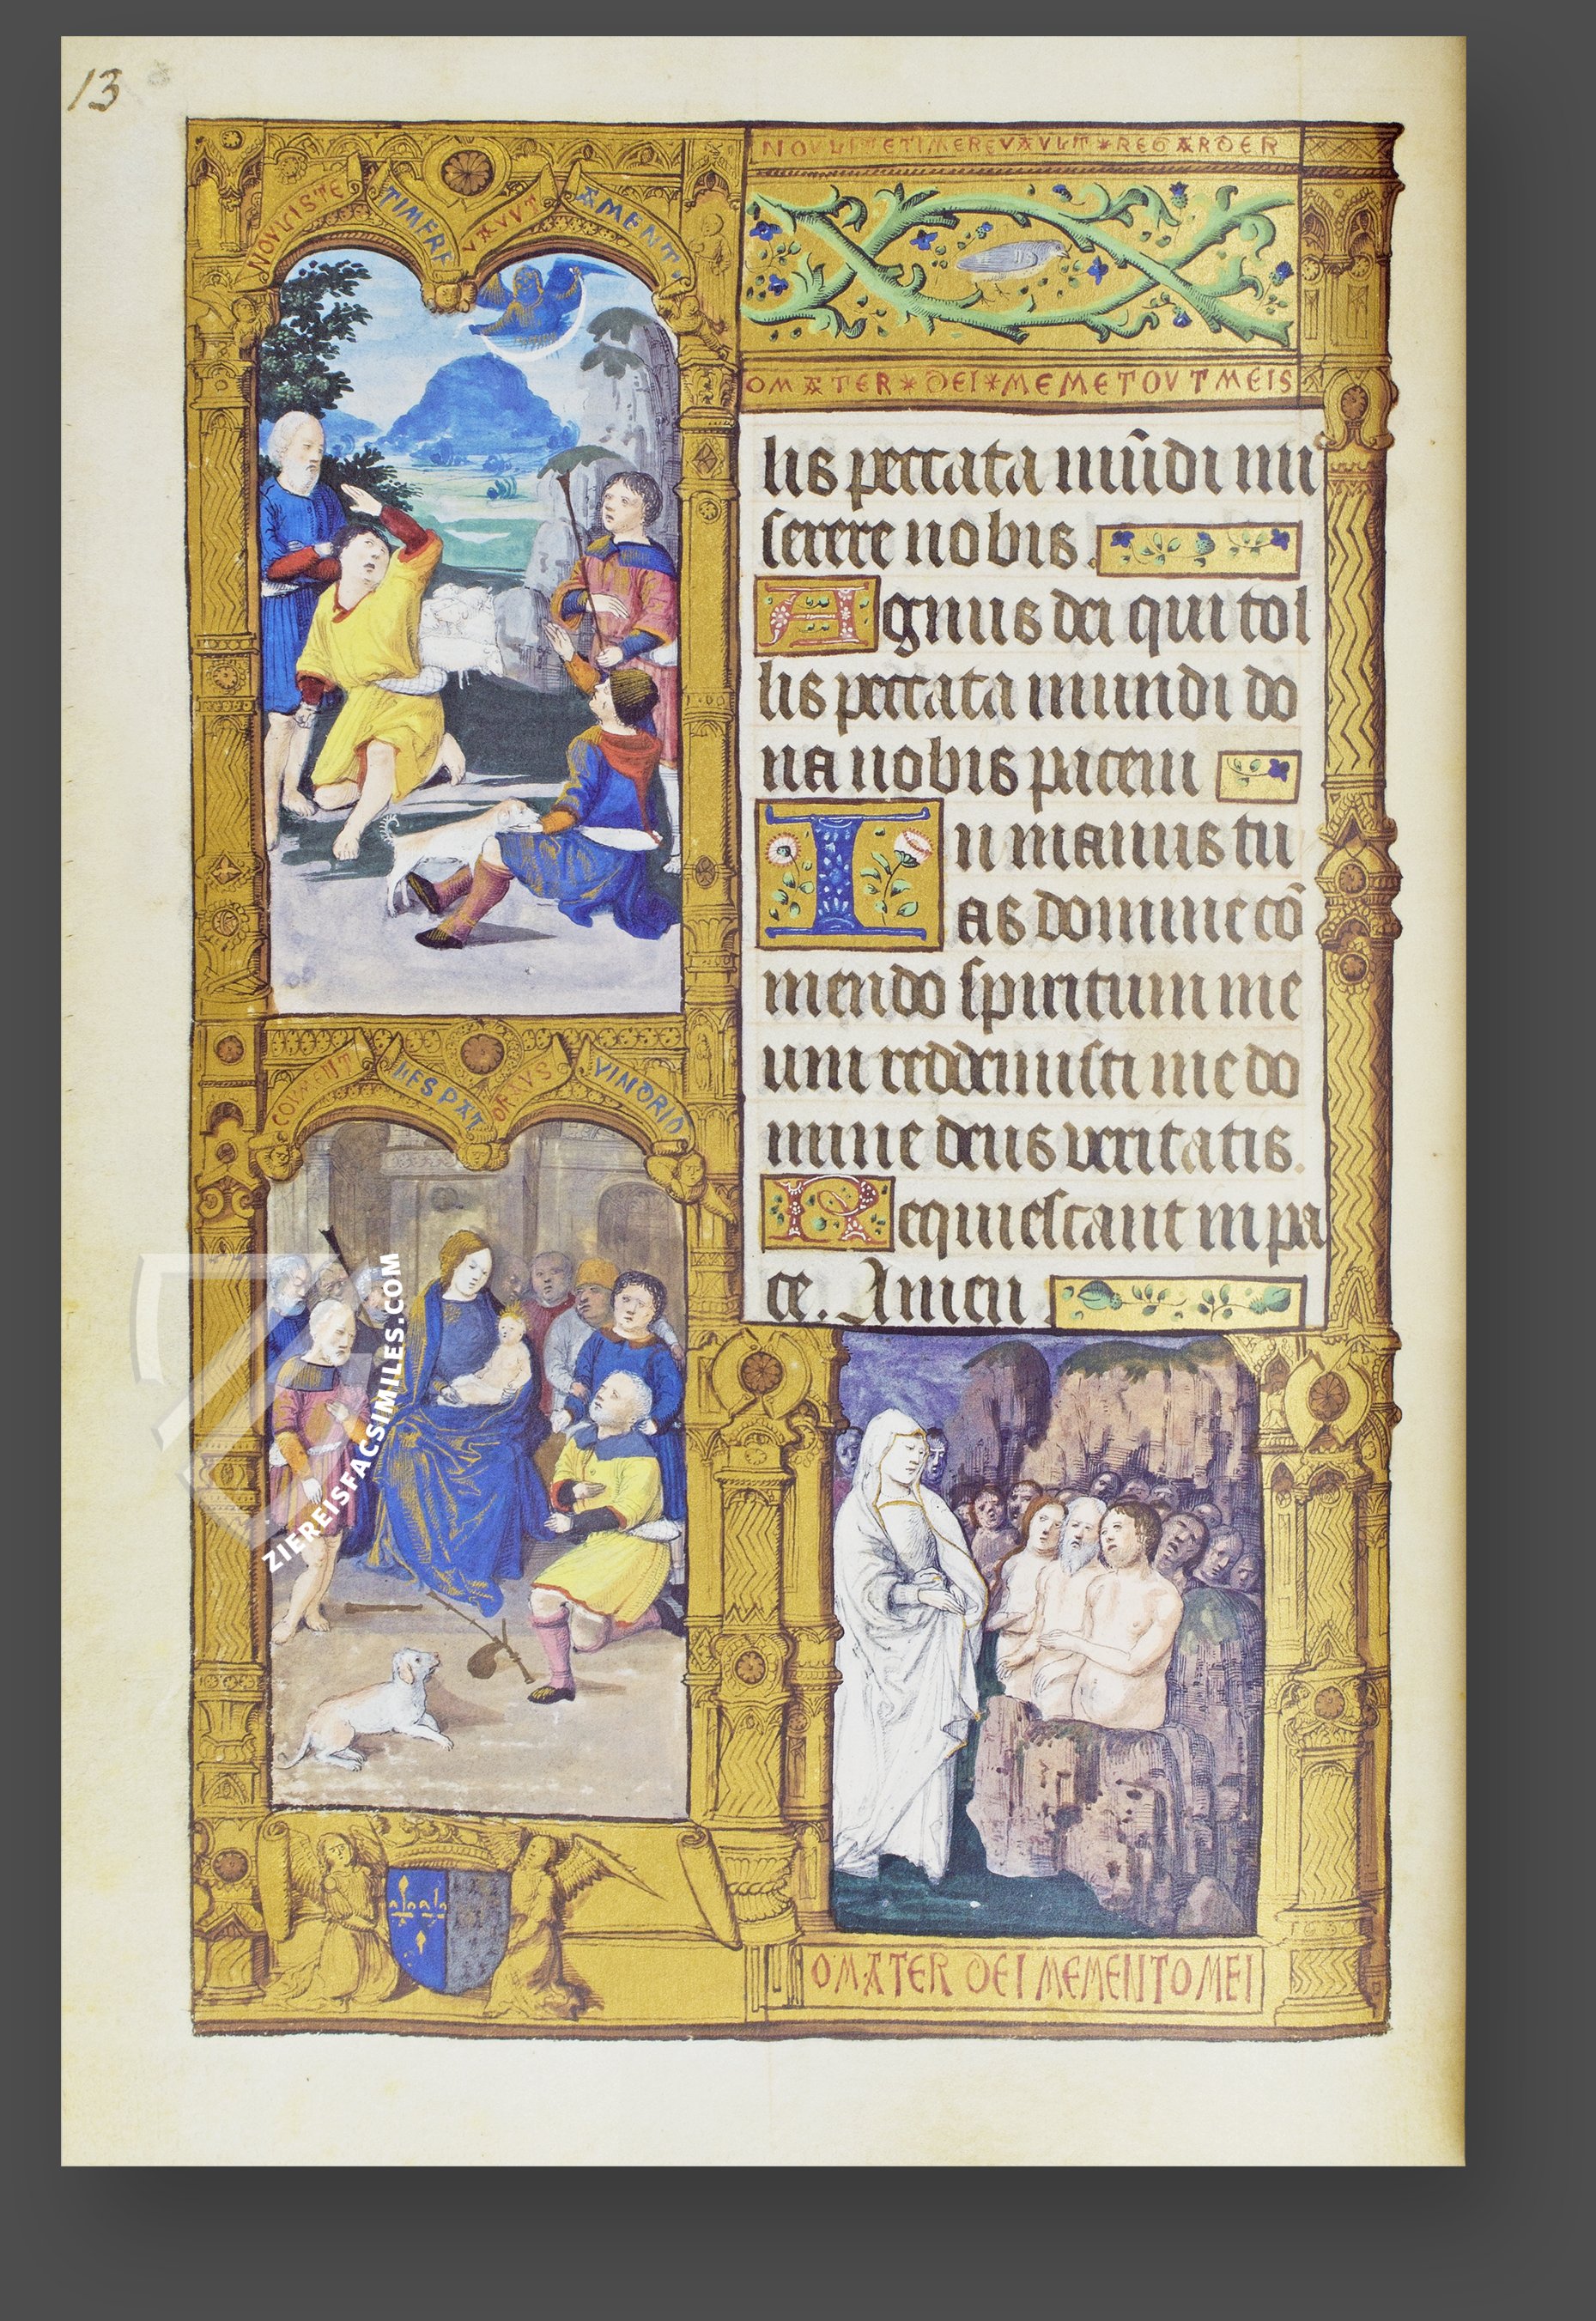 13
NOVLISTE TIMERE VAVVT AMENT
NOVLITETIMEREVAVLT*REGARDER
OMATER*DEI*MEMETOVTMEIS
lis peccata mũdi mi
serere nobis.
Agnus dei qui tol
lis peccata mundi do
na nobis pacem
In manus tu
as domine cõ
mendo spiritum me
um redemisti me do
mine deus veritatis.
Requiescant in pa
ce. Amen
VINDRID
OMATER DEI MEMENTOMEI
ZIEREISFACSIMILES.COM